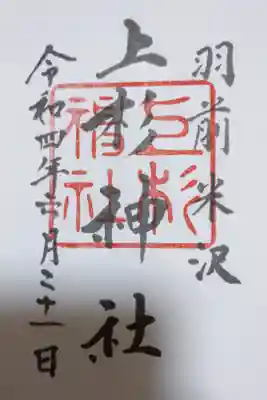 羽前米沢
上杉神社
令和四年六月二十一日
上杉
神社